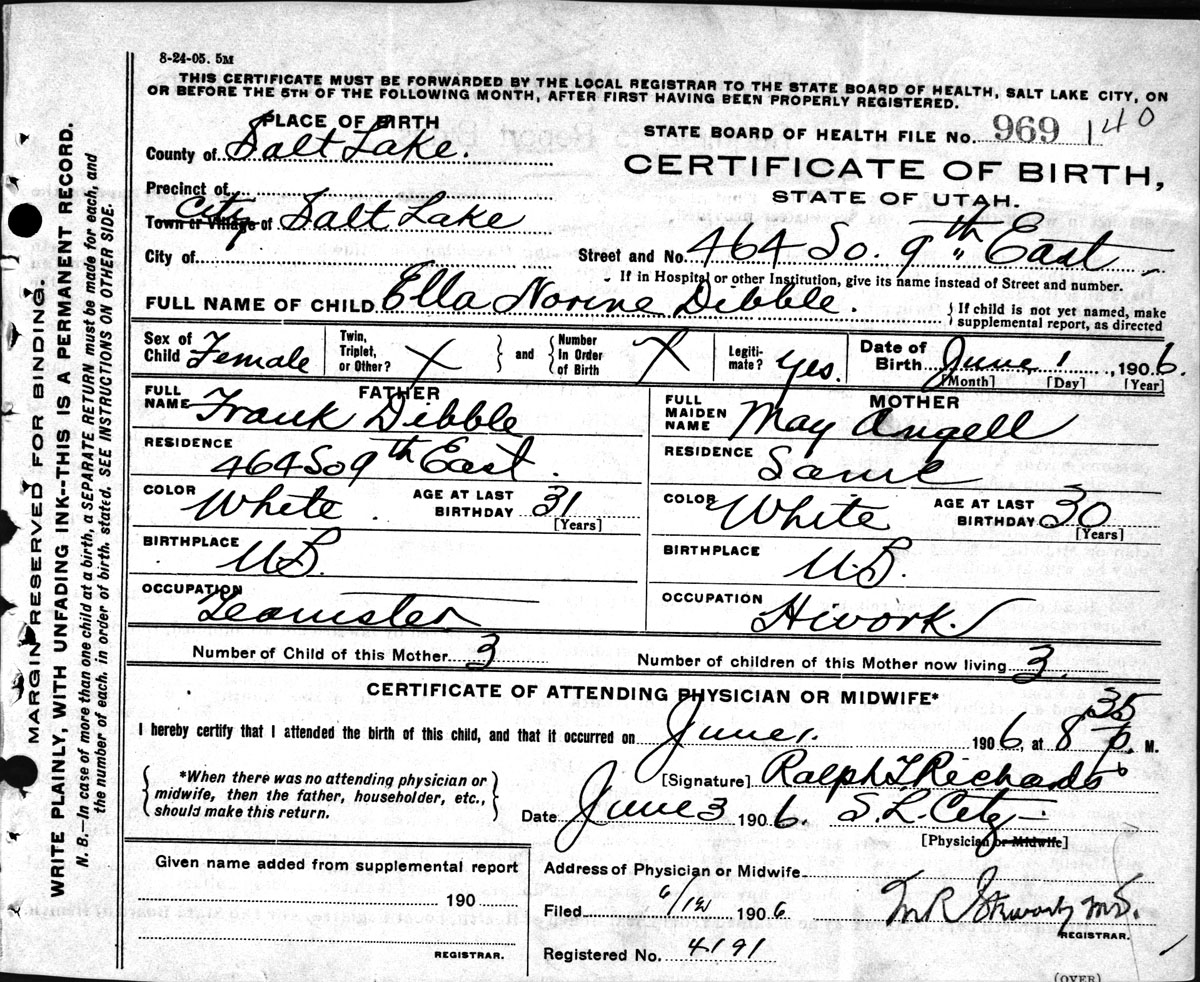 8-24-05. 5M
THIS CERTIFICATE MUST BE FORWARDED BY THE LOCAL REGISTRAR TO THE STATE BOARD OF HEALTH, SALT LAKE CITY, ON
OR BEFORE THE 5TH OF THE FOLLOWING MONTH, AFTER FIRST HAVING BEEN PROPERLY REGISTERED.
PLACE OF BIRTH
County of Salt Lake.
Precinct of
City
Town or Village of Salt Lake
City of
STATE BOARD OF HEALTH FILE No. 969 140
CERTIFICATE OF BIRTH,
STATE OF UTAH.
Street and No. 464 So. 9th East
If in Hospital or other Institution, give its name instead of Street and number.
FULL NAME OF CHILD Ella Norine Dibble. } If child is not yet named, make
supplemental report, as directed
Sex of Child Female Twin, Triplet, or Other? X } and { Number In Order of Birth X Legiti-mate? yes. Date of Birth June 1, 1906.
[Month] [Day] [Year]
FATHER
FULL NAME Frank Dibble
RESIDENCE 464 So 9th East.
COLOR White. AGE AT LAST BIRTHDAY 31
[Years]
BIRTHPLACE
OCCUPATION Teamster
MOTHER
FULL MAIDEN NAME May Angell
RESIDENCE Same
COLOR White AGE AT LAST BIRTHDAY 30
[Years]
BIRTHPLACE
OCCUPATION Hwork.
Number of Child of this Mother 3 Number of children of this Mother now living 3.
CERTIFICATE OF ATTENDING PHYSICIAN OR MIDWIFE*
I hereby certify that I attended the birth of this child, and that it occurred on June 1. 1906, at 8 35 P. M.
{ *When there was no attending physician or
midwife, then the father, householder, etc.,
should make this return. }
[Signature] Ralph T Richards
Date June 3 1906. S. L. City
[Physician or Midwife]
Given name added from supplemental report
190
REGISTRAR.
Address of Physician or Midwife
Filed 1906
REGISTRAR.
Registered No. 4191
(OVER)
MARGIN RESERVED FOR BINDING.
WRITE PLAINLY, WITH UNFADING INK--THIS IS A PERMANENT RECORD.
N. B.—In case of more than one child at a birth, a SEPARATE RETURN must be made for each, and
the number of each, in order of birth, stated. SEE INSTRUCTIONS ON OTHER SIDE.